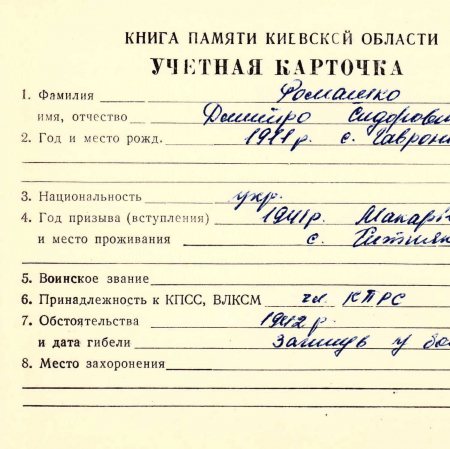 КНИГА ПАМЯТИ КИЕВСКОЙ ОБЛАСТИ
УЧЕТНАЯ КАРТОЧКА
1. Фамилия Романенко
имя, отчество Дмитро Сидорови
2. Год и место рожд. 1911 р. с. Гаврон
3. Национальность укр.
4. Год призыва (вступления) 1941 р. Макарі
и место проживания с. Ситняк
5. Воинское звание
6. Принадлежность к КПСС, ВЛКСМ чл. КПРС
7. Обстоятельства 1942 р.
и дата гибели Загинув у бо
8. Место захоронения